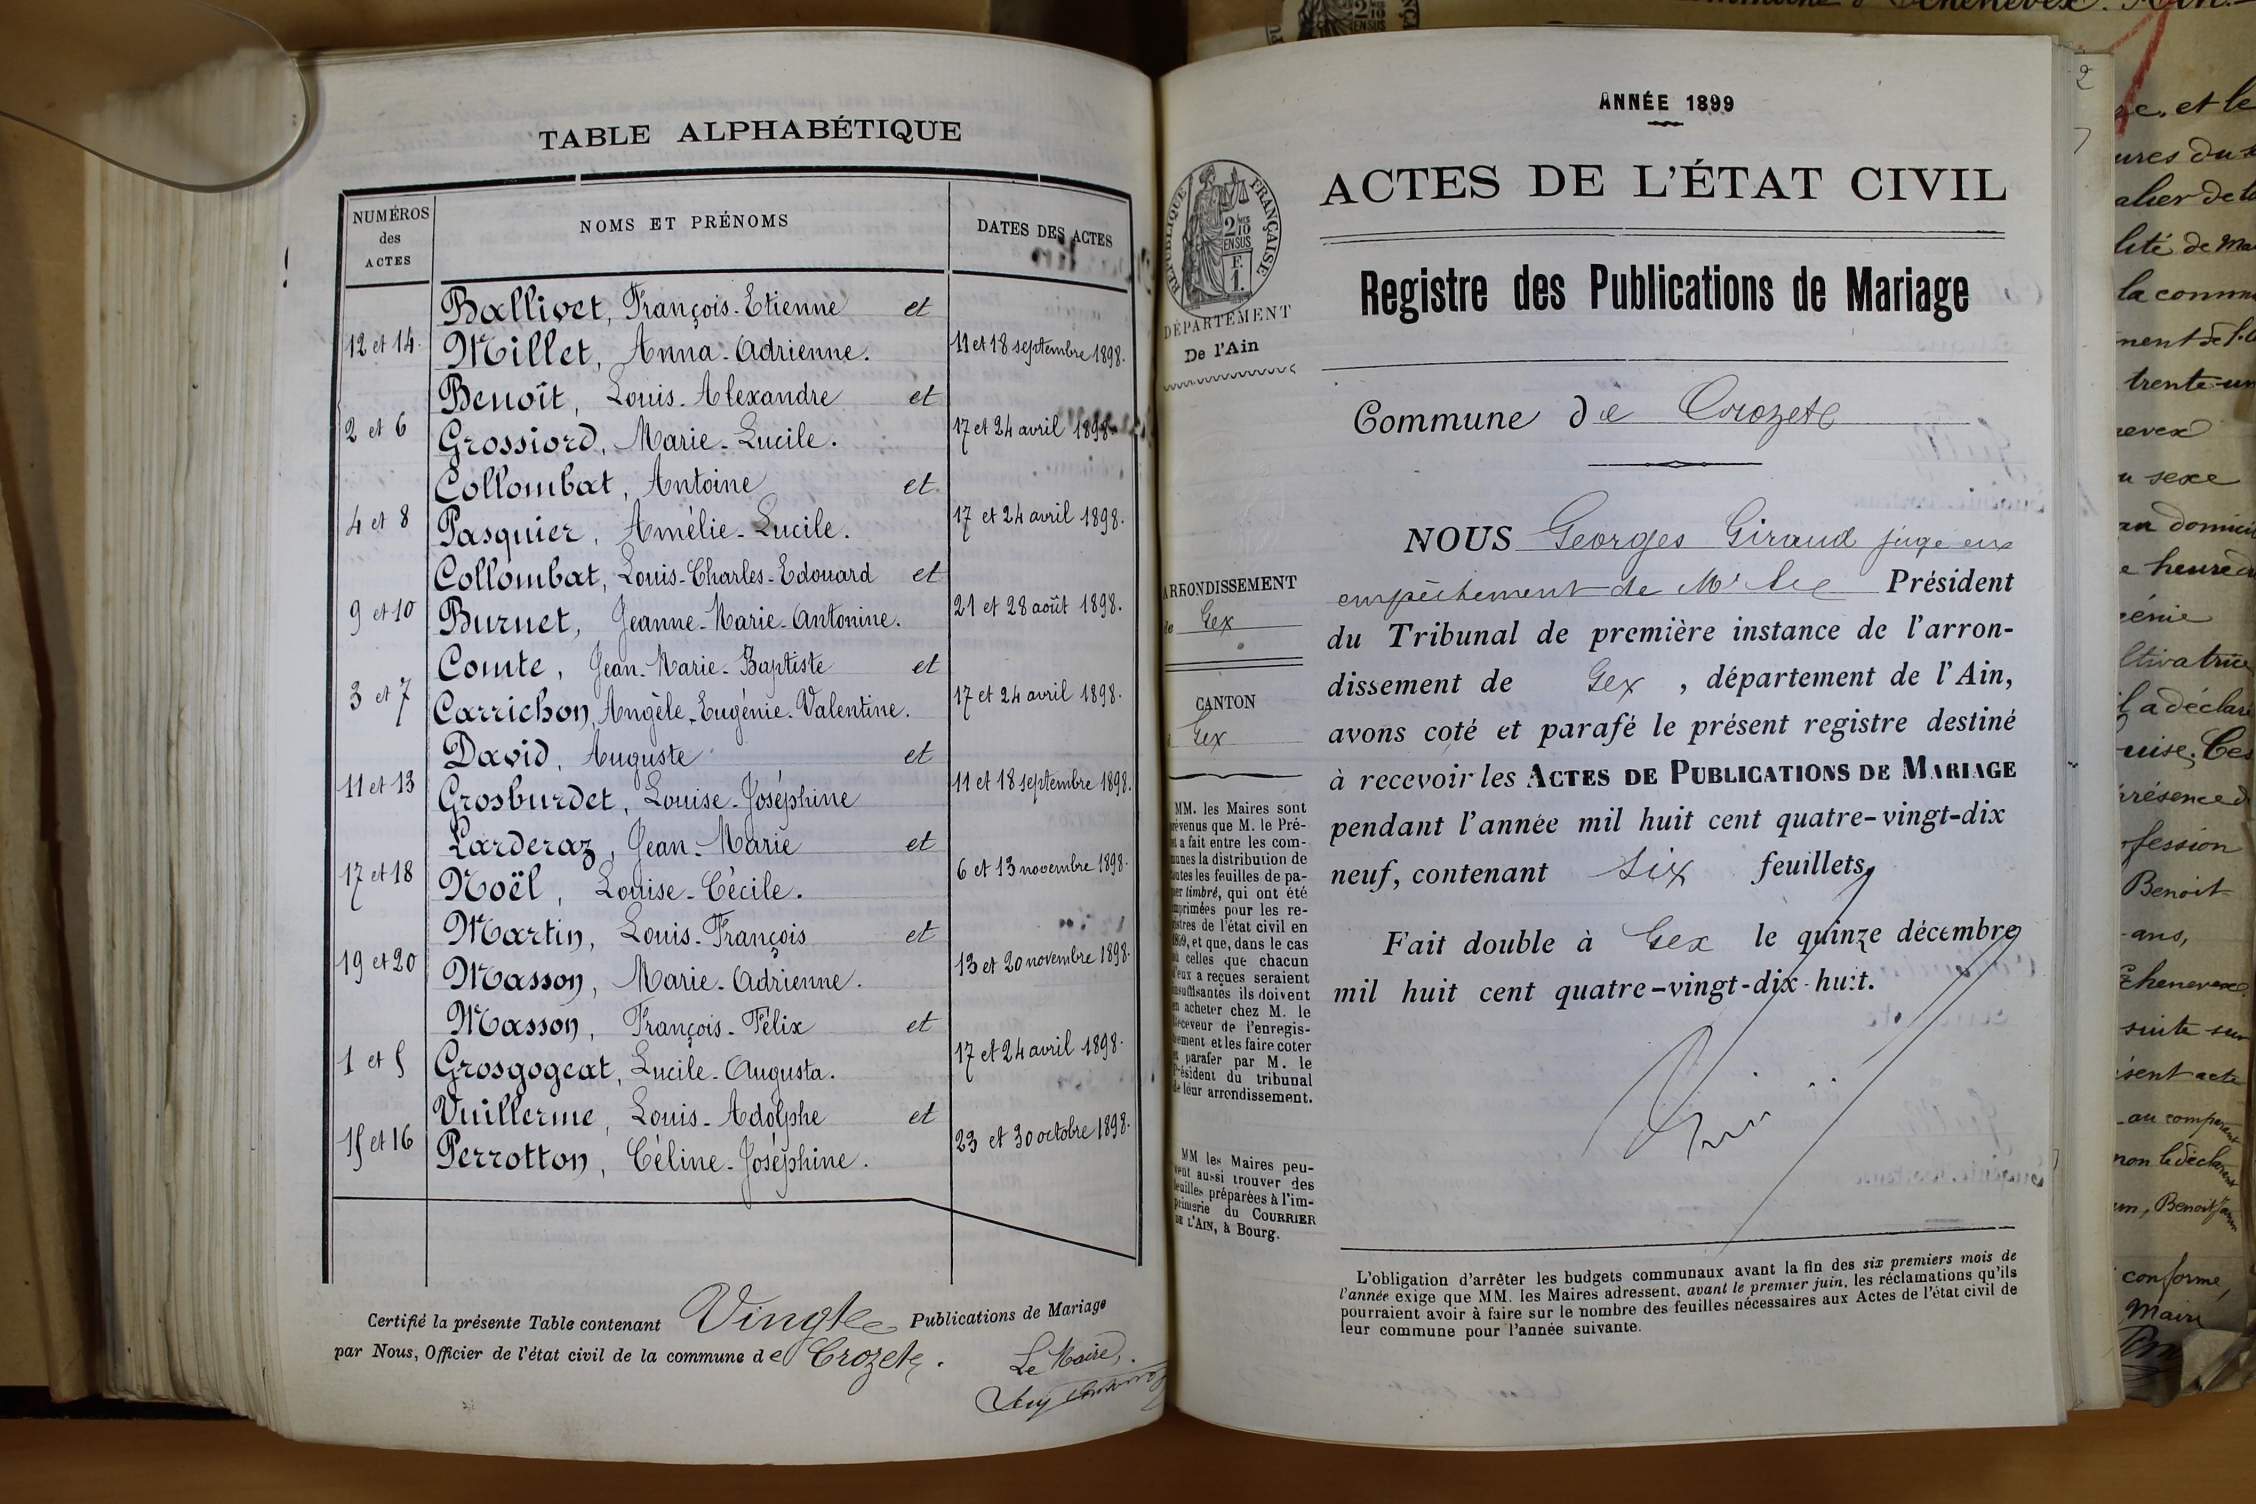 TABLE ALPHABÉTIQUE
NUMÉROS des ACTES
NOMS ET PRÉNOMS
DATES DES ACTES
Ballivet, François-Etienne et
12 et 14. Millet, Anna-Adrienne. 11 et 18 septembre 1898.
Benoît, Louis-Alexandre et
2 et 6 Grossiord, Marie-Lucile. 17 et 24 avril 1898.
Collombat, Antoine et
4 et 8 Pasquier, Amélie-Lucile. 17 et 24 avril 1898.
Collombat, Louis-Charles-Edouard et
9 et 10 Burnet, Jeanne-Marie-Antonine. 21 et 28 août 1898.
Comte, Jean-Marie-Baptiste et
3 et 7 Carrichon, Angèle-Eugénie-Valentine. 17 et 24 avril 1898.
David, Auguste et
11 et 13 Grosburdet, Louise-Joséphine 11 et 18 septembre 1898.
Larderaz, Jean-Marie et
17 et 18 Noël, Louise-Cécile. 6 et 13 novembre 1898.
Martin, Louis-François et
19 et 20 Masson, Marie-Adrienne. 13 et 20 novembre 1898.
Masson, François-Félix et
1 et 5 Grosgogeat, Lucile-Augusta. 17 et 24 avril 1898.
Vuillerme, Louis-Adolphe et
15 et 16 Perrotton, Céline-Joséphine. 23 et 30 octobre 1898.
Certifié la présente Table contenant Vingt Publications de Mariage
par Nous, Officier de l'état civil de la commune de Crozet.
Le Maire,
ANNÉE 1899
ACTES DE L'ÉTAT CIVIL
RÉPUBLIQUE FRANÇAISE
2 MES
10
EN SUS
F.
1.
DÉPARTEMENT
De l'Ain
Registre des Publications de Mariage
Commune de Crozet
ARRONDISSEMENT
de Gex
CANTON
Gex
MM. les Maires sont
prévenus que M. le Pré-
et a fait entre les com-
munes la distribution de
toutes les feuilles de pa-
per timbré, qui ont été
imprimées pour les re-
gistres de l'état civil en
1899, et que, dans le cas
où celles que chacun
d'eux a reçues seraient
insuffisantes ils doivent
en acheter chez M. le
Receveur de l'enregis-
rement et les faire coter
et parafer par M. le
Président du tribunal
de leur arrondissement.
MM les Maires peu-
vent aussi trouver des
feuilles préparées à l'im-
primerie du COURRIER
DE L'AIN, à Bourg.
NOUS Georges Giraud juge en
empêchement de Mr le Président
du Tribunal de première instance de l'arron-
dissement de Gex, département de l'Ain,
avons coté et parafé le présent registre destiné
à recevoir les ACTES DE PUBLICATIONS DE MARIAGE
pendant l'année mil huit cent quatre-vingt-dix
neuf, contenant six feuillets,
Fait double à Gex le quinze décembre
mil huit cent quatre-vingt-dix-huit.
L'obligation d'arrêter les budgets communaux avant la fin des six premiers mois de
l'année exige que MM. les Maires adressent, avant le premier juin, les réclamations qu'ils
pourraient avoir à faire sur le nombre des feuilles nécessaires aux Actes de l'état civil de
leur commune pour l'année suivante.
2
et le
ures du
lité de
la commu
trente-un
sexe
heure
ltivatrice
l a déclaré
présence d
fession
Benoit
ans,
Echenevex
suite sur
ésent acte
au comparant
non le déclarant
Benoit
conforme,
Maire